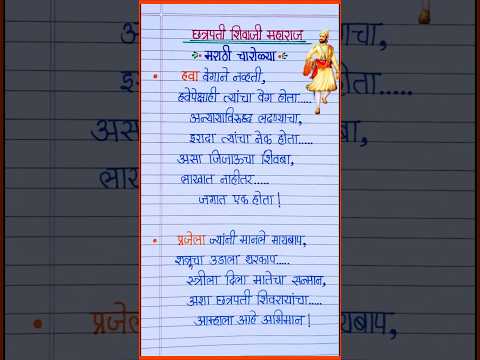 छत्रपती शिवाजी महाराज
मराठी चारोळ्या
हवा वेगाने नव्हती,
हवेपेक्षाही त्यांचा वेग होता....
अन्यायाविरुद्ध लढण्याचा,
इरादा त्यांचा नेक होता....
असा जिजाऊचा शिवबा,
लाखात नाहीतर.....
जगात एक होता!
प्रजेला ज्यांनी मानले मायबाप,
शत्रूचा उडाला थरकाप....
स्त्रीला दिला मातेचा सन्मान,
अशा छत्रपती शिवरायांचा.....
आम्हाला आहे अभिमान!